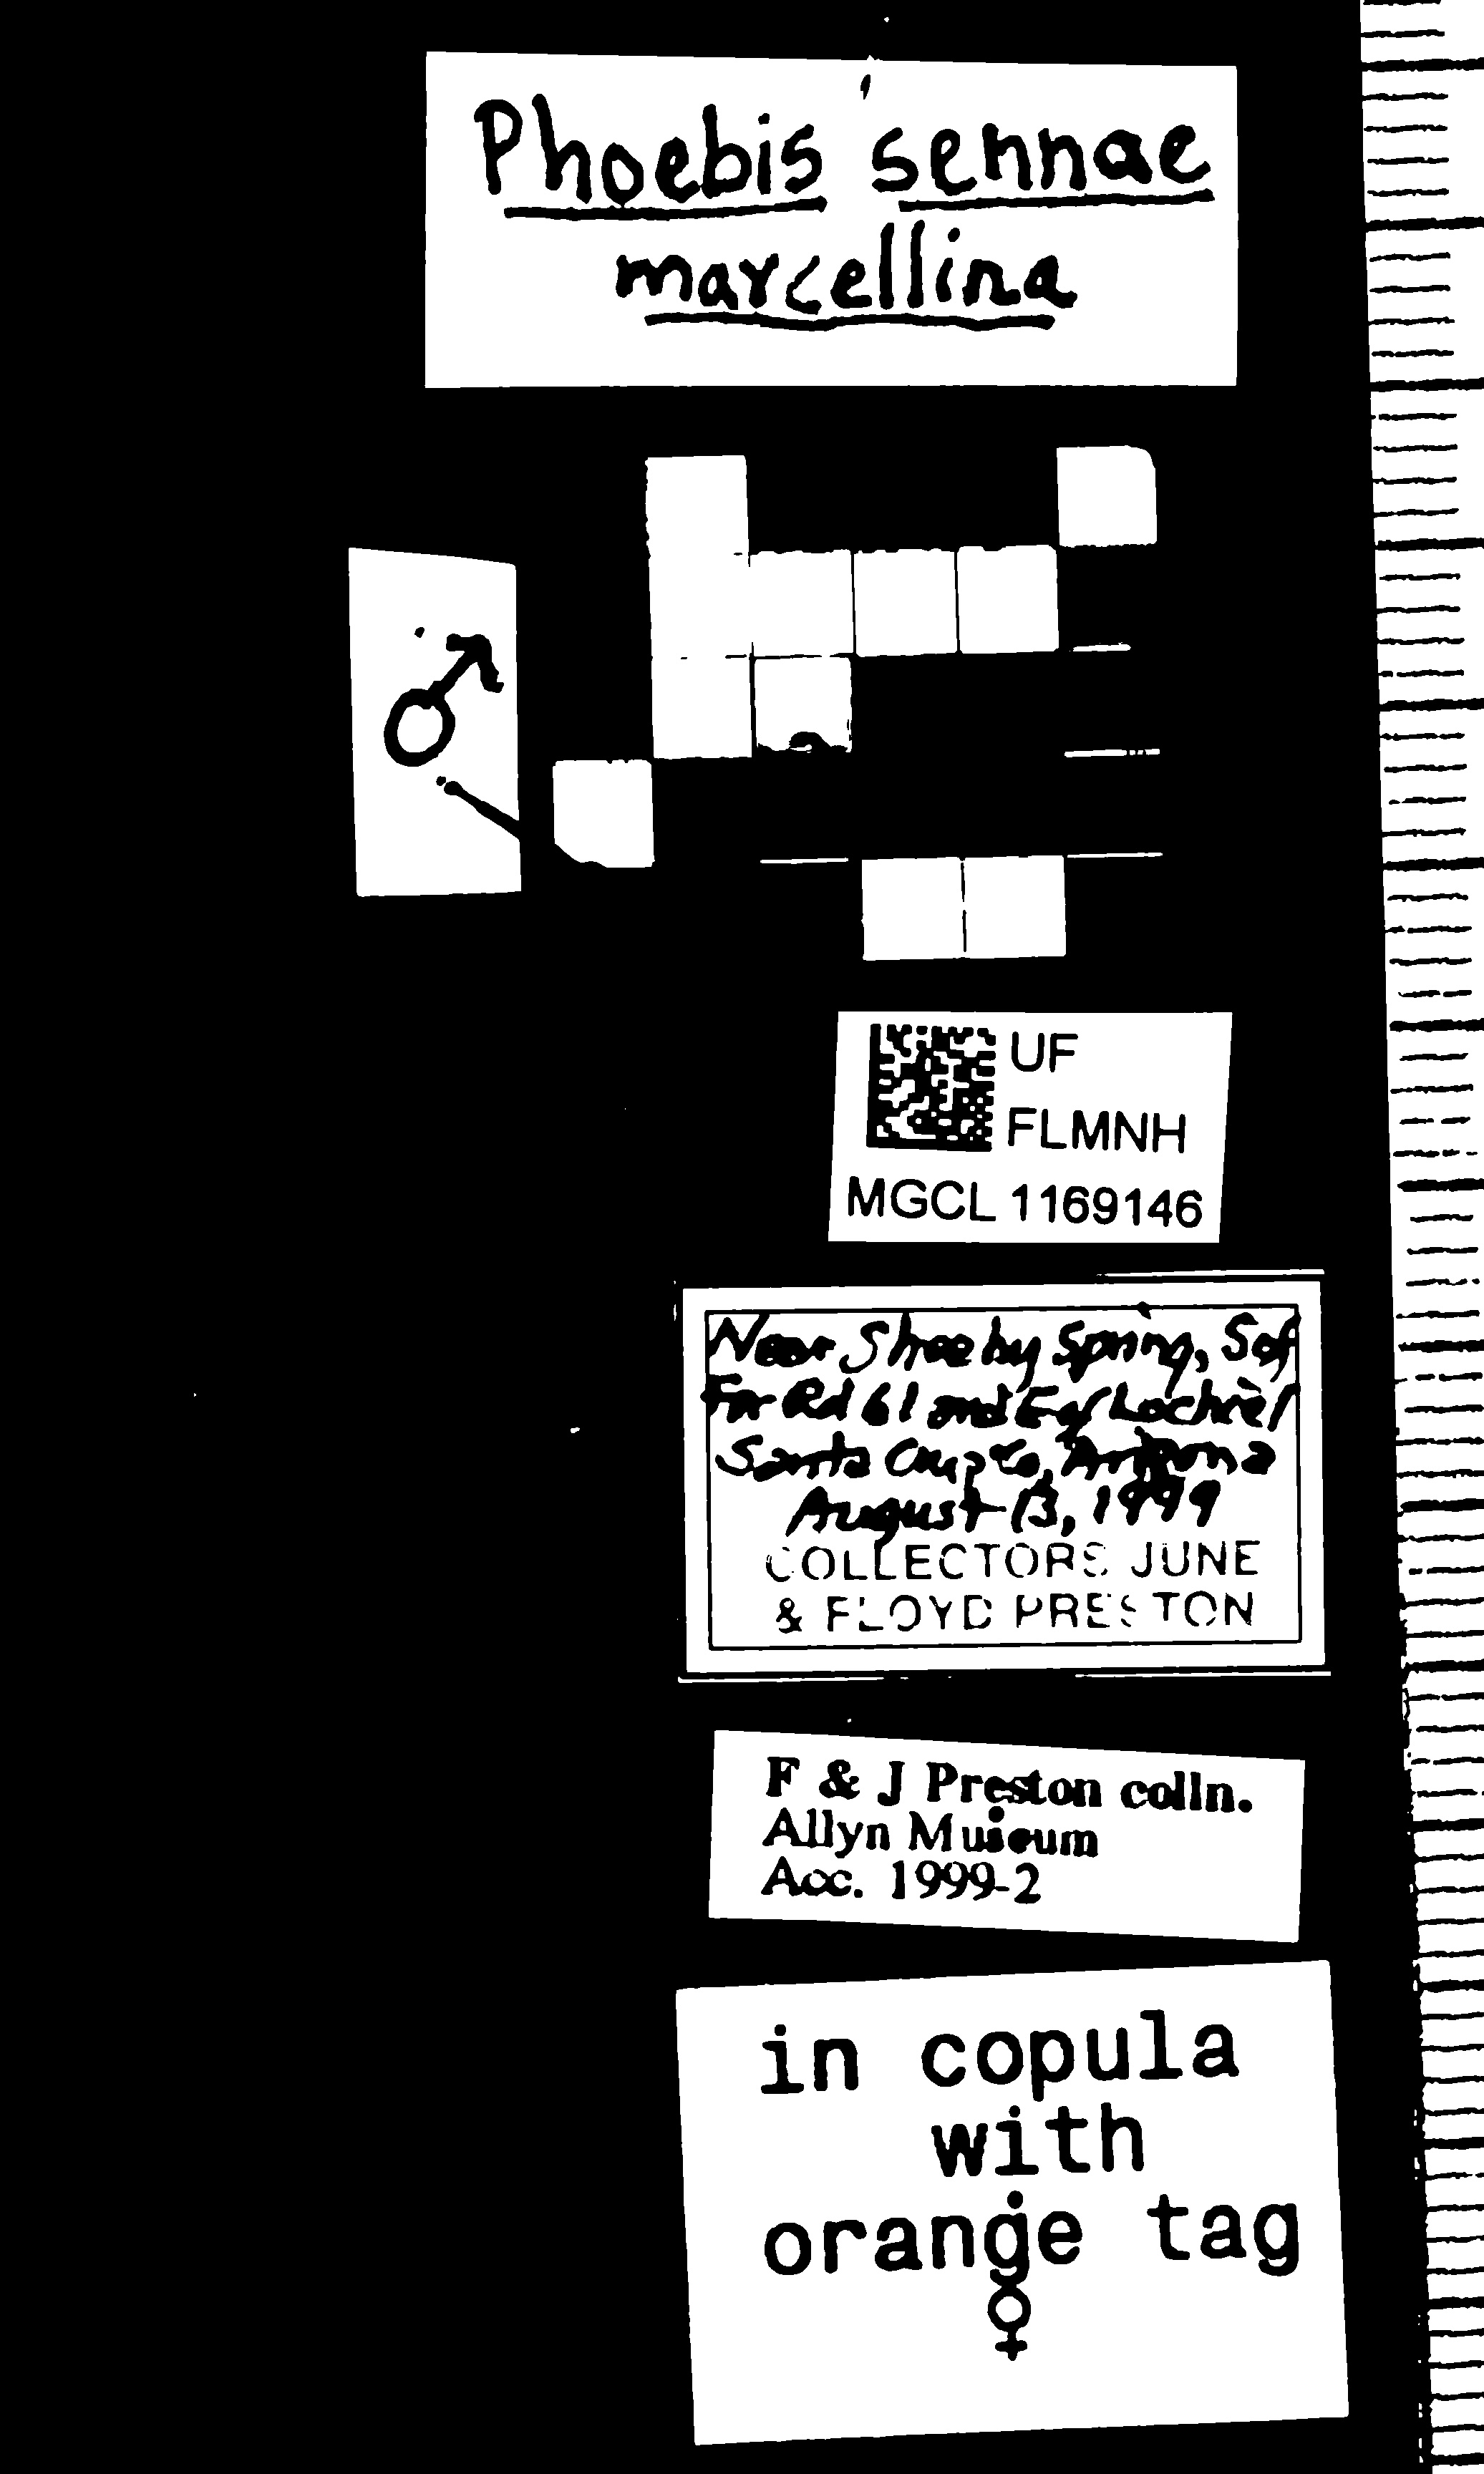 Phoebis sennae
marcellina
♂
UF
FLMNH
MGCL 1169146
Near Sheehy Spring, S of
For Rd 61 and E of Lochiel
Santa Cruz Co, Arizona
August 13, 1999
COLLECTORS JUNE
& FLOYD PRESTON
F & J Preston colln.
Allyn Museum
Acc. 1999-2
in copula
with
orange tag
♀